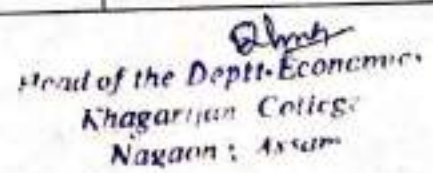 Head of the Deptt-Economics
Khagarijan College
Nagaon : Assam